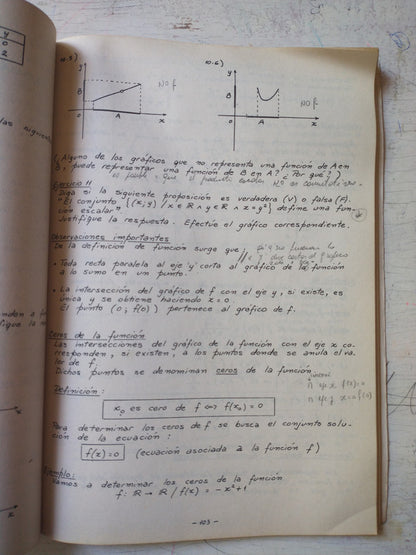 10.5)
10.6)
y
B
A
x
NO f
y
B
A
x
NO f
y
0
2
(Alguno de los gráficos que no representa una función de A en
B, puede representar una función de B en A? ¿Por qué?)
Ejercicio 11
Diga si la siguiente proposición es verdadera (V) o falsa (F).
"El conjunto {(x,y) / x ∈ R ∧ y ∈ R ∧ x = y²} define una fun-
ción escalar"
Justifique la respuesta. Efectúe el gráfico correspondiente.
Observaciones importantes
De la definición de función surge que:
• Toda recta paralela al eje 'y' corta al gráfico de la función
a lo sumo en un punto.
• La intersección del gráfico de f con el eje y, si existe, es
única y se obtiene haciendo x = 0.
El punto (0; f(0)) pertenece al gráfico de f.
Ceros de la función
Las intersecciones del gráfico de la función con el eje x co-
rresponden, si existen, a los puntos donde se anula el va-
lor de f.
Dichos puntos se denominan ceros de la función
Definición:
x₀ es cero de f ⟺ f(x₀) = 0
Para determinar los ceros de f se busca el conjunto solu-
ción de la ecuación:
f(x) = 0 (ecuación asociada a la función f)
Ejemplo:
Vamos a determinar los ceros de la función
f: R → R / f(x) = -x² + 1
- 103 -